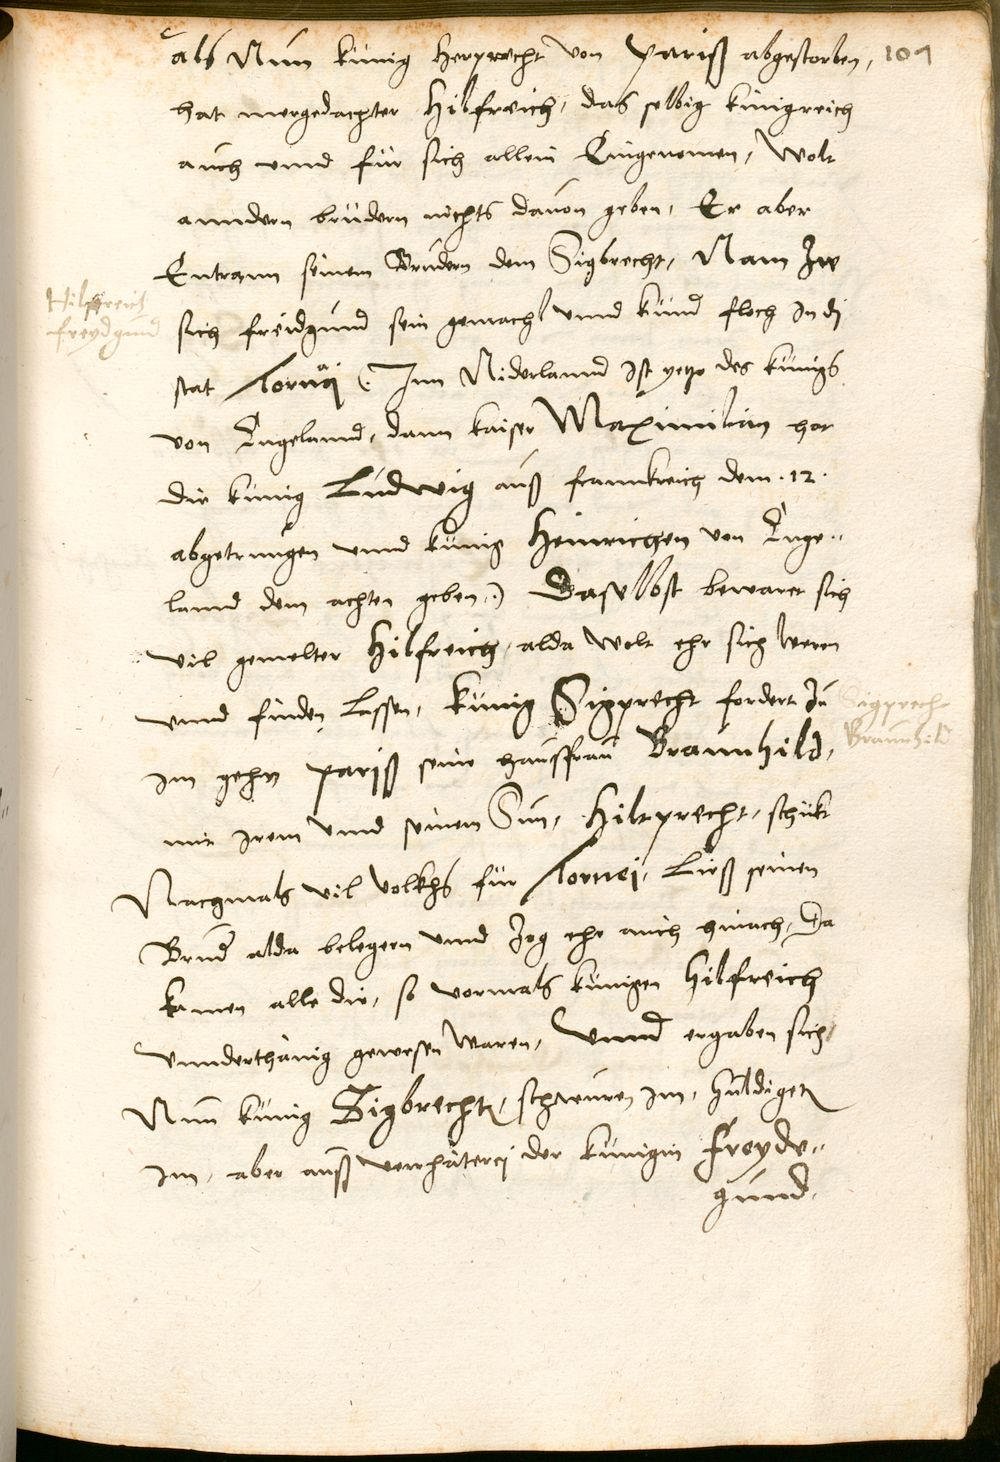 109
als Nun künig Herprecht von Pariß abgestorben,
hat mergedachter Hilfreich, das selbig künigreich
auch unnd für sich allein Eingenomen, Wolt
anndern brüdern nichts davon geben, Er aber
Entrann seinem Brudern dem Sigbrecht, Nam
Hilfreich
freydgund
sich freidgund sein gemachl unnd kund floch in di
stat Tornaj (. Inn Niderlannd ist yetzo des künigs
von Engelannd, dann kaiser Maximilian hat
die künig Ludwig auß frannkreich dem .12.
abgetrungen unnd künig Heinrichen von Enge..
lannd dem achten geben .) Daselbst bewaret sich
vil gemelter Hilfreich, alda Wolt ehr sich weren
unnd finden lassen, künig Sigprecht fordert Zu
Sigprecht
Braunhild
im gehn Pariß seine hausfrau Braunhild,
mit irem unnd seinem Sun, Hiltprecht, schikt
Nachmals vil Volkhs für Tornej, Ließ seinen
Brud alda belegern unnd Zog ehr auch hinach, Da
kamen alle die, so vormals künigen Hilfreich
Unnderthänig gewesen Waren, Unnd ergaben sich,
Nun künig Sigbrecht, schwuren im, huldigetn
im, aber auß verhäterej der künigin Freyde..
gund,